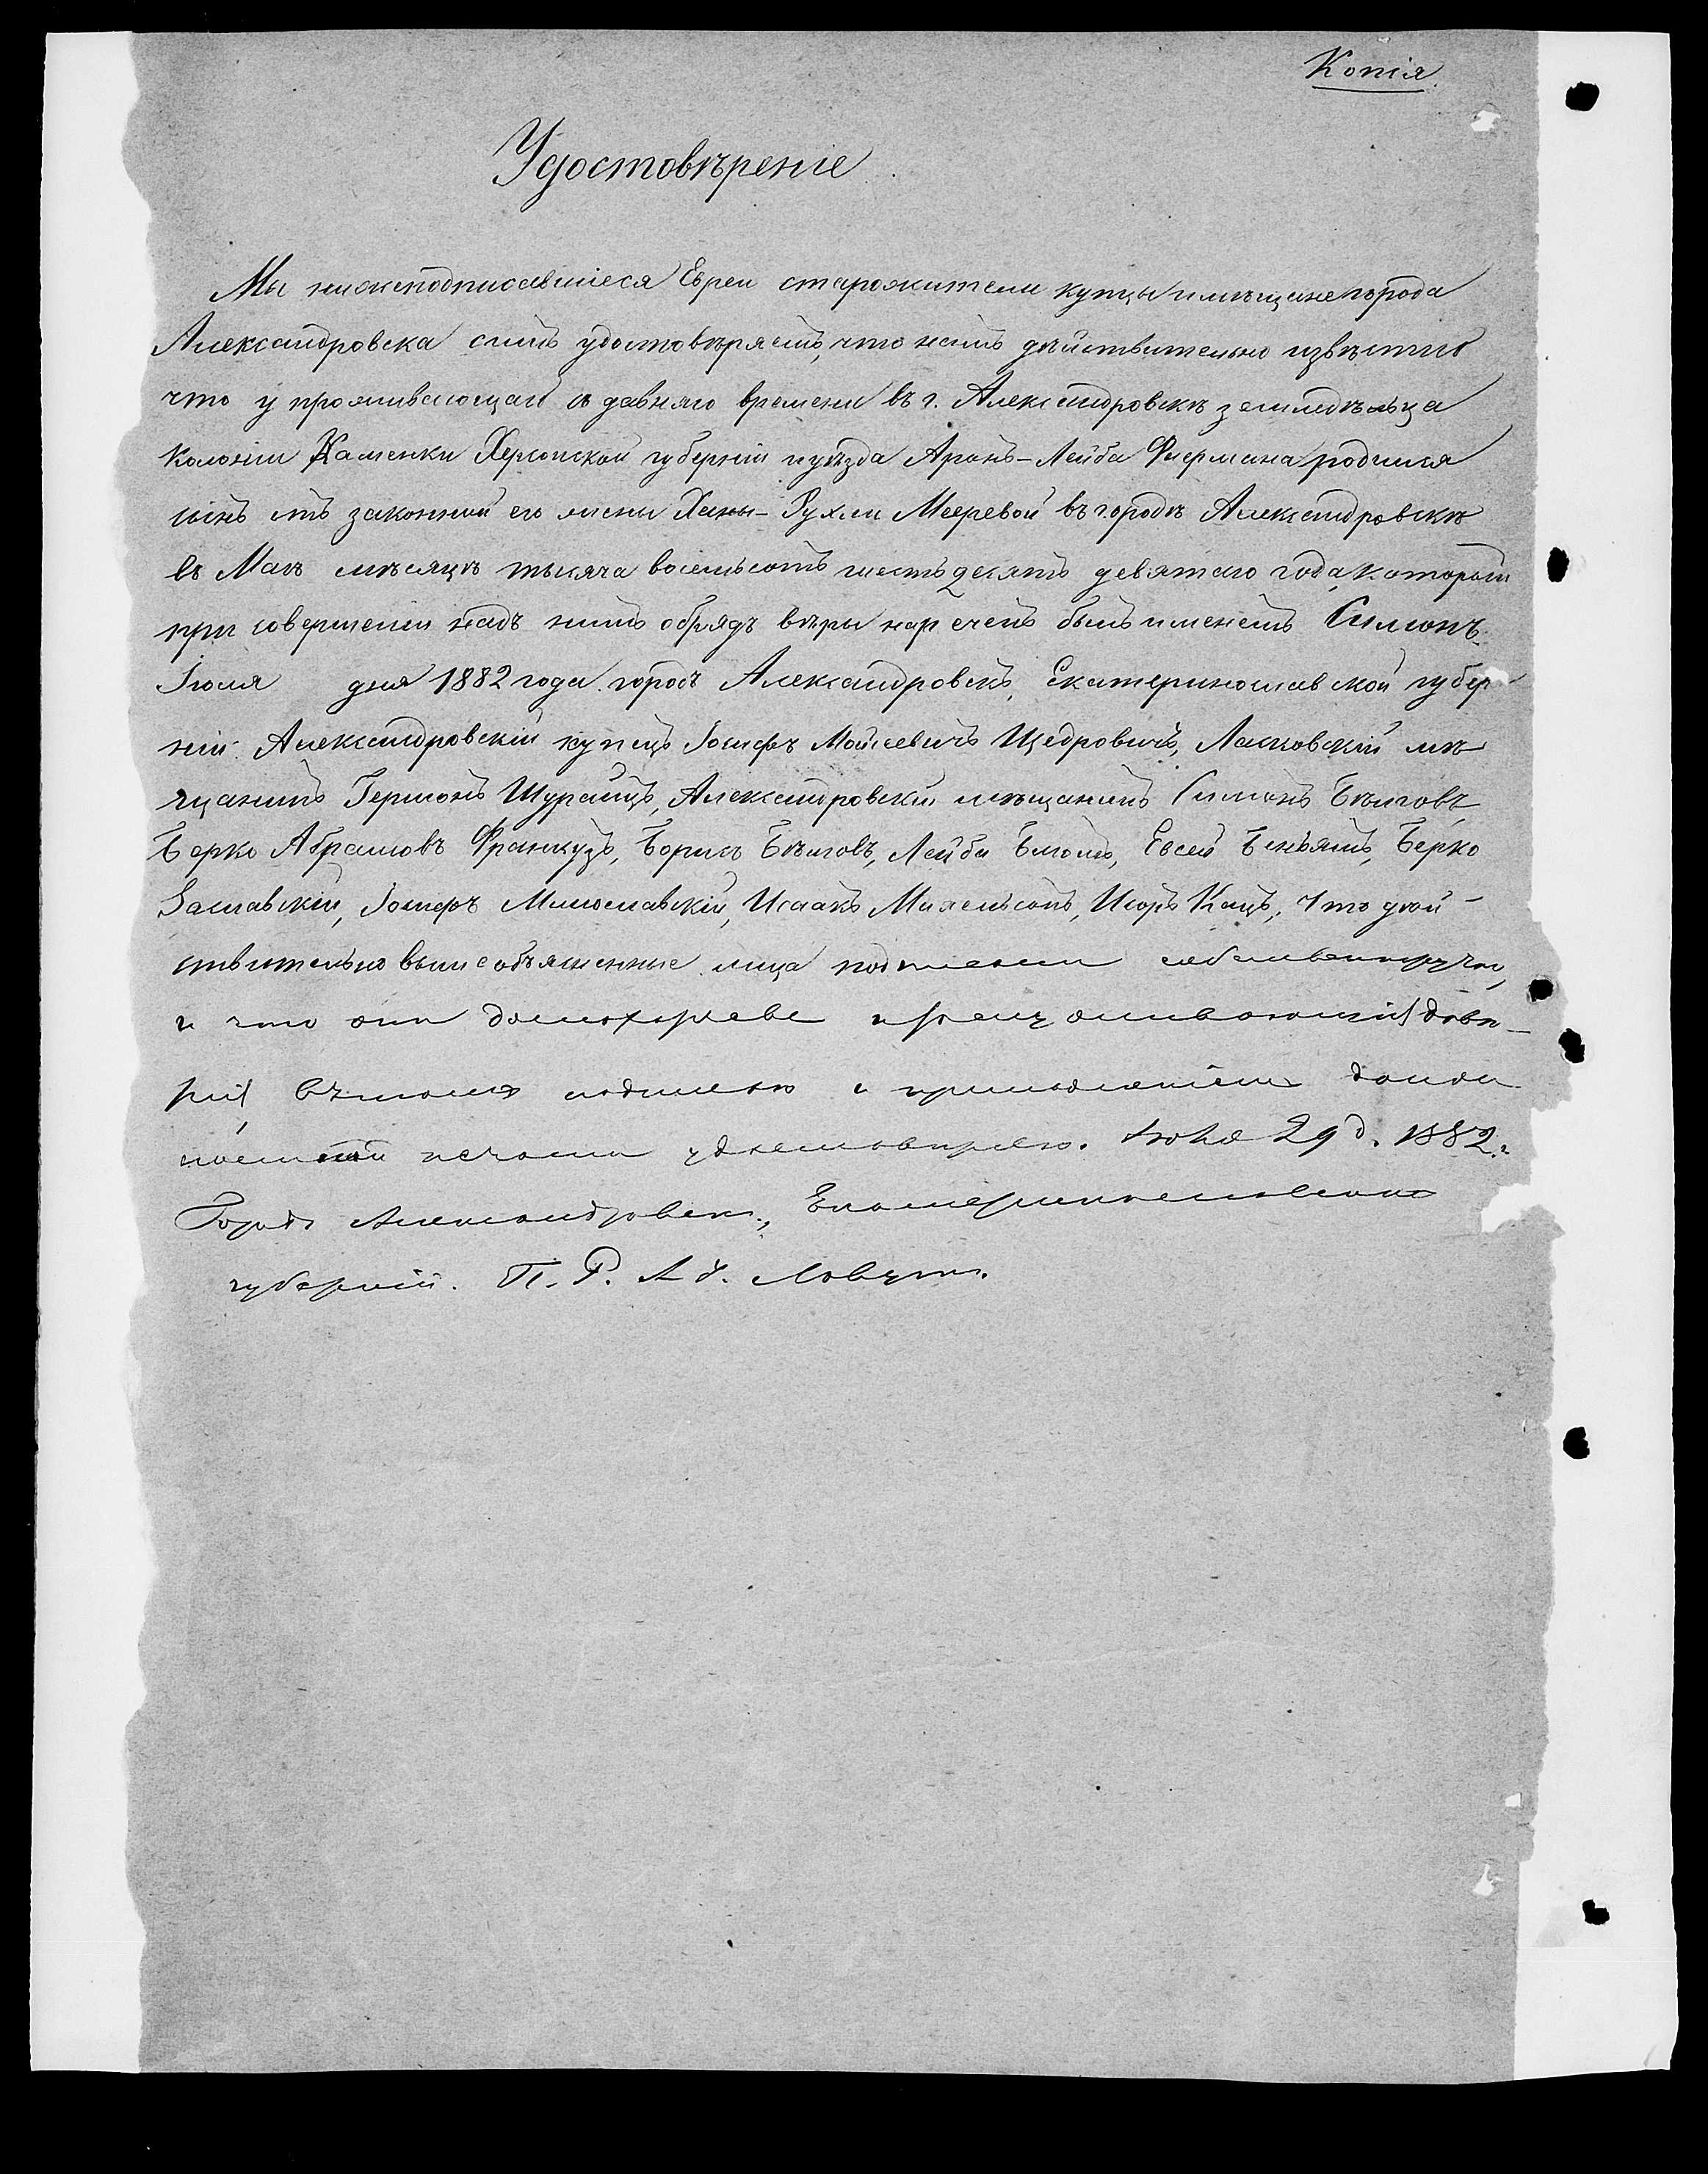 Копія
Удостовѣреніе
Мы нижеподписавшіеся Евреи старожители купцы и мѣщане города
Александровска симъ удостовѣряемъ, что намъ дѣйствительно извѣстно
что у проживающаго съ давняго времени въ г. Александровскѣ земледѣльца
колоніи Каменки Херсонской губерніи и уѣзда Аронъ-Лейба Фиермана родился
сынъ отъ законной его жены Ханы-Рухли Мееревой въ городѣ Александровскѣ
въ Маѣ мѣсяцѣ тысяча восемьсотъ шестьдесятъ девятаго года, который
при совершеніи надъ нимъ обрядъ вѣры нареченъ былъ именемъ Симонъ.
Іюля дня 1882 года. городъ Александровскъ, Екатеринославской губер-
ніи. Александровскій купецъ Іосифъ Мойсеевичъ Щедровичъ, мѣ-
щанинъ Гершонъ Александровскій мѣщанинъ Симонъ
Берко Абрамовъ Французъ, Борисъ Лейба Евсей Берко
Заславскій, Іосифъ Милославскій, Исаакъ Каць, Что дѣй-
ствительно вышеобъясненные лица подписали собственноручно,
и что они
въ томъ подписью и приложеніемъ
печати удостовѣряю. 29 д. 1882 г.
Городъ Александровскъ, Екатеринославской
губерніи. П. Р.